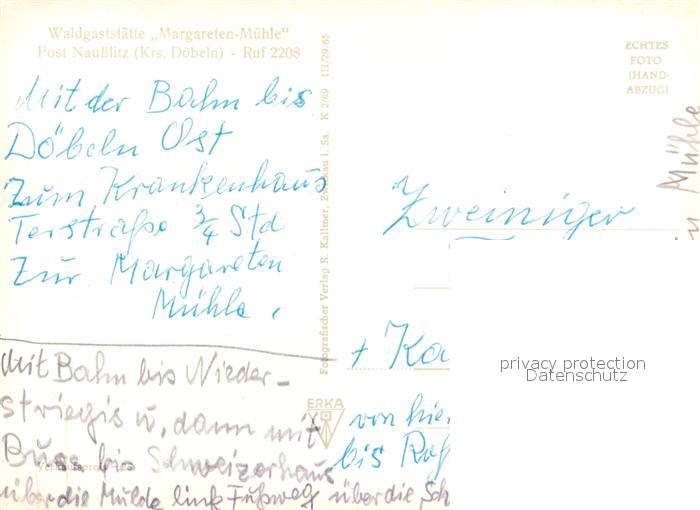 Waldgaststätte „Margareten-Mühle"
Post Naußlitz (Krs. Döbeln) - Ruf 2208
Mit der Bahn bis
Döbeln Ost
Zum Krankenhaus
Terstraße ¾ Std
Zur Margareten
Mühle.
Mit Bahn bis Nieder-
striegis u, dann mit
Buss bis Schweizerhaus
über die Mulde link Fußweg über die Sch
Fotografischer Verlag R. Kallmer, Zwickau i. Sa. K 2/69 III/29/65
ERKA
ECHTES
FOTO
(HAND-
ABZUG)
Mühle
Zweiniger
+ Ka
von hier
bis Roß
privacy protection
Datenschutz